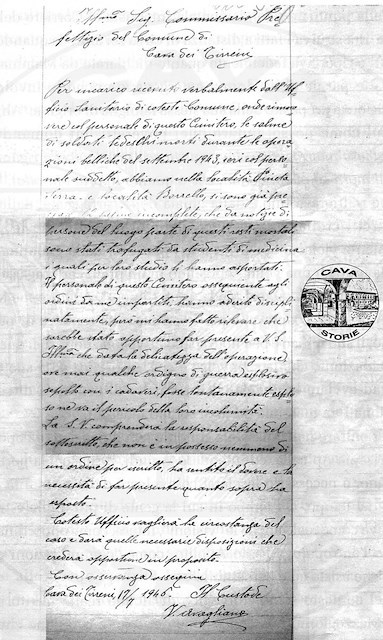 Ill.mo Sig. Commissario Pre
fettizio del Comune di
Cava dei Tirreni
Per incarico ricevuti verbalmente dall'Uf
ficio Sanitario di cotesto Comune, onde rimuo
vere col personale di questo Cimitero, le salme
di soldati tedeschi morti durante le opera
zioni belliche del settembre 1943, ieri col perso
nale suddetto, abbiamo nella località Pineta
Serra, e località Borrello, si sono già
salme incomplete, che da notizie di
persone del luogo parte di questi resti mortali
sono stati trafugati da studenti di medicina
i quali per loro studio li hanno asportati.
Il personale di questo Cimitero ossequente agli
ordini da me impartiti, hanno aderito discipli
natamente, però mi hanno fatto rilevare che
sarebbe stato opportuno far presente a V.S.
Ill.ma che data la delicatezza dell'operazione
ove mai qualche ordigno di guerra esplosivo
sepolto con i cadaveri, fosse lontanamente esplo
so ne va il pericolo della loro incolumità.
La S.V. comprenderà la responsabilità del
sottoscritto, che non è in possesso nemmeno di
un ordine per iscritto, ha sentito il dovere e la
necessità di far presente quanto sopra ha
esposti.
Cotesto Ufficio vaglierà la circostanza del
caso e darà quelle necessarie disposizioni che
crederà opportune in proposito.
Con osservanza ossequia
Cava dei Tirreni, 1946. Il Custode
CAVA
STORIE